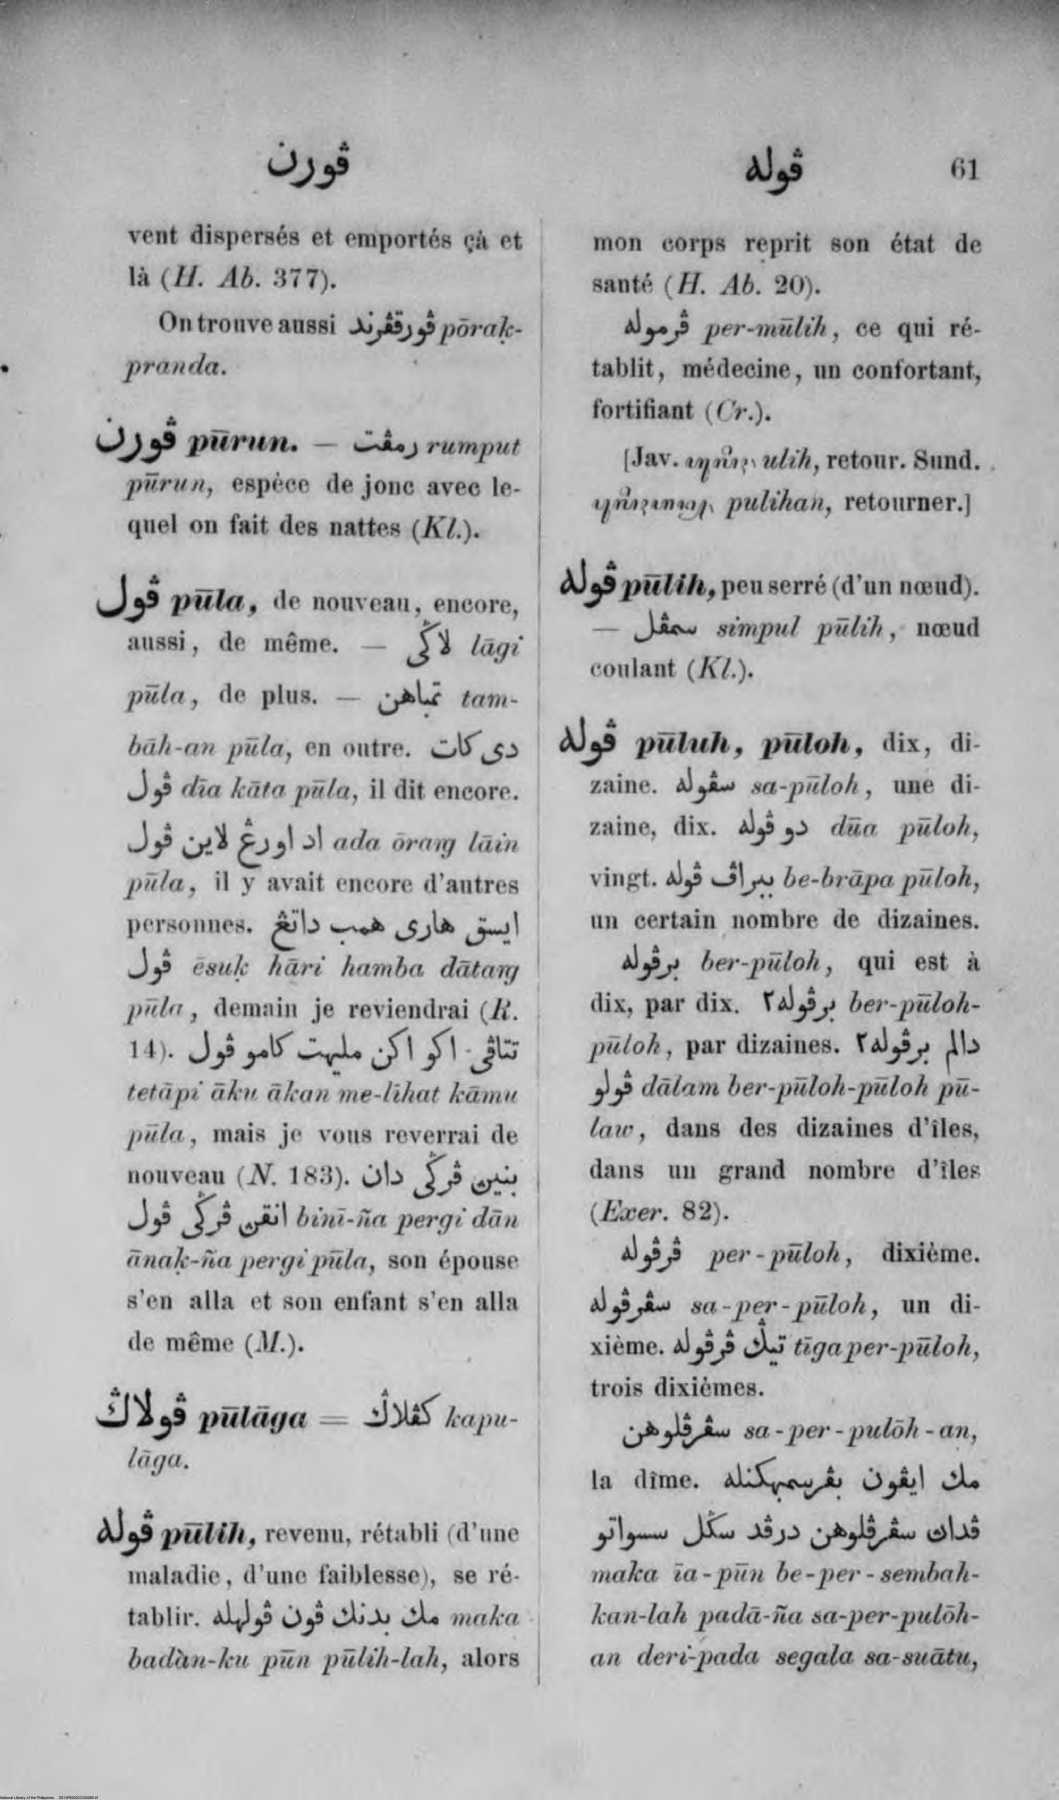 ڤورن
ڤوله
61
vent dispersés et emportés çà et
là (H. Ab. 377).
On trouve aussi ڤورقڤرند pōraḳ-
pranda.
ڤورن pūrun. — رمڤت rumput
pūrun, espèce de jonc avec le-
quel on fait des nattes (Kl.).
ڤول pūla, de nouveau, encore,
aussi, de même. — لاڬي lāgi
pūla, de plus. — تمباهن tam-
bāh-an pūla, en outre. دى كات
ڤول dīa kāta pūla, il dit encore.
اد اورڠ لاين ڤول ada ōraṅg lāin
pūla, il y avait encore d'autres
personnes. ايسق هارى همب داتڠ
ڤول ēsuḳ hāri hamba dātaṅg
pūla, demain je reviendrai (R.
14). تتاڤى اكو اكن مليهت كامو ڤول
tetāpi āku ākan me-līhat kāmu
pūla, mais je vous reverrai de
nouveau (N. 183). بنين ڤرڬي دان
انقن ڤرڬي ڤول binī-ña pergi dān
ānaḳ-ña pergi pūla, son épouse
s'en alla et son enfant s'en alla
de même (M.).
ڤولاڬ pūlāga = كڤلاڬ kapu-
lāga.
ڤوله pūlih, revenu, rétabli (d'une
maladie, d'une faiblesse), se ré-
tablir. مك بدنك ڤون ڤولهله maka
badàn-ku pūn pūlih-lah, alors
mon corps reprit son état de
santé (H. Ab. 20).
ڤرموله per-mūlih, ce qui ré-
tablit, médecine, un confortant,
fortifiant (Cr.).
[Jav. ulih, retour. Sund.
pulihan, retourner.]
ڤوله pūlih, peu serré (d'un nœud).
— سمڤل simpul pūlih, nœud
coulant (Kl.).
ڤوله pūluh, pūloh, dix, di-
zaine. سڤوله sa-pūloh, une di-
zaine, dix. دو ڤوله dūa pūloh,
vingt. ببراڤ ڤوله be-brāpa pūloh,
un certain nombre de dizaines.
برڤوله ber-pūloh, qui est à
dix, par dix. برڤوله٢ ber-pūloh-
pūloh, par dizaines. دالم برڤوله٢
ڤولو dālam ber-pūloh-pūloh pū-
law, dans des dizaines d'îles,
dans un grand nombre d'îles
(Exer. 82).
ڤرڤوله per-pūloh, dixième.
سڤرڤوله sa-per-pūloh, un di-
xième. تيڬ ڤرڤوله tīga per-pūloh,
trois dixièmes.
سڤرڤلوهن sa-per-pulōh-an,
la dîme. مك ايڤون بڤرسمبهكنله
ڤدان سڤرڤلوهن درڤد سڬل سسواتو
maka īa-pūn be-per-sembah-
kan-lah padā-ña sa-per-pulōh-
an deri-pada segala sa-suātu,